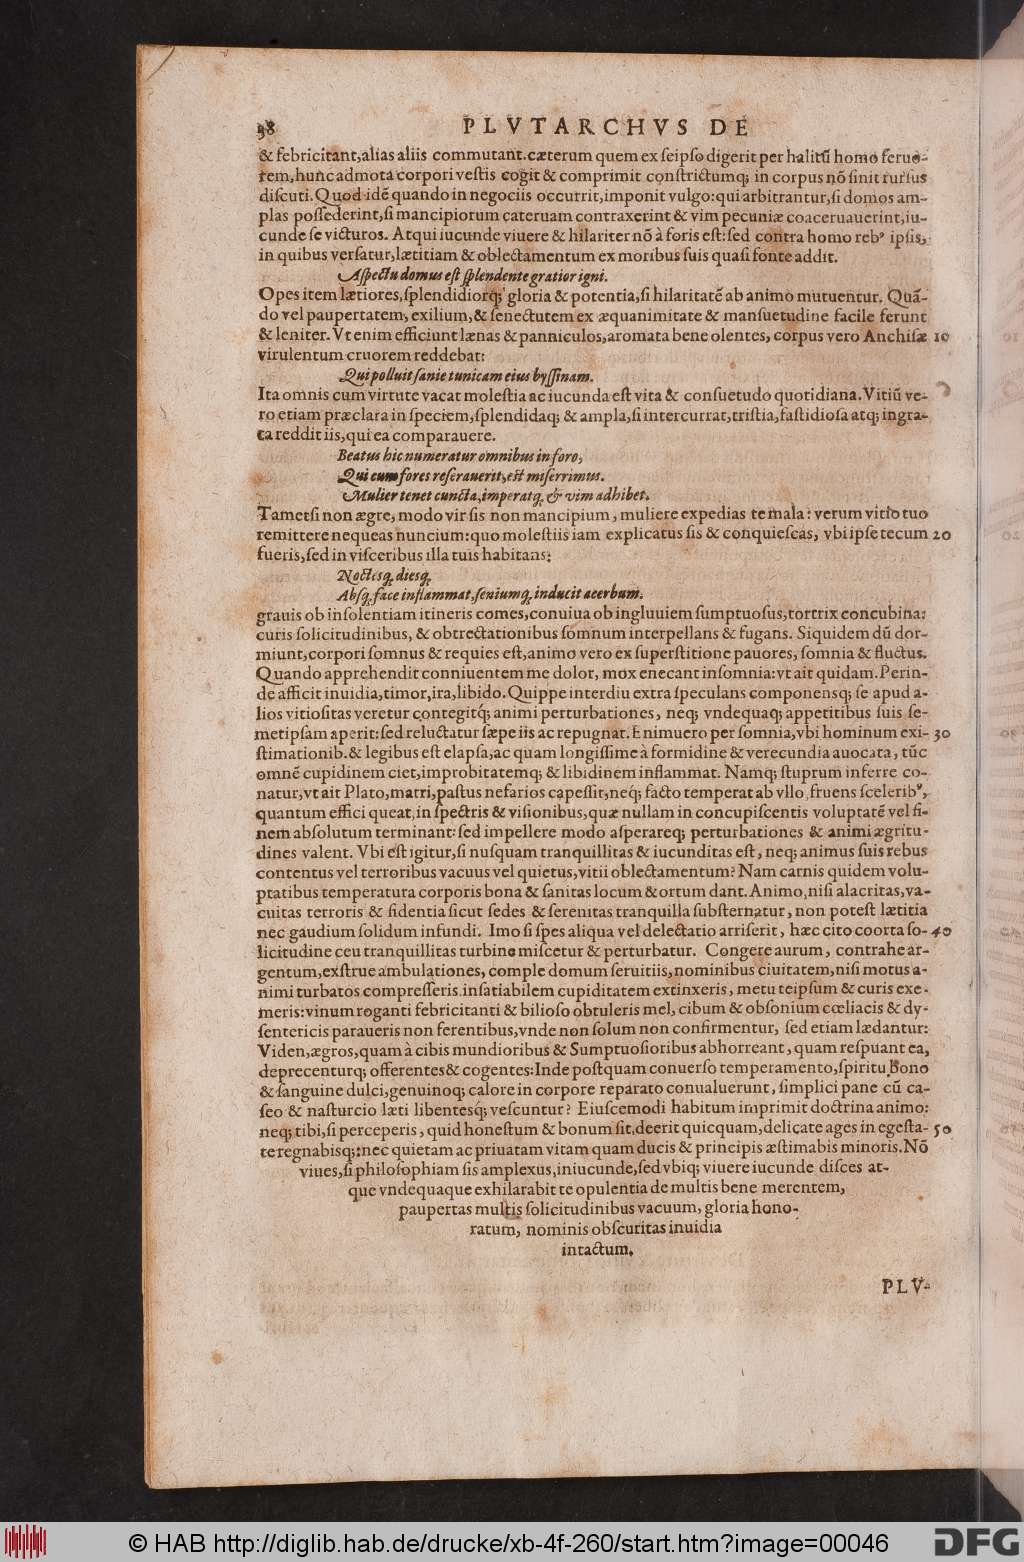 38 PLVTARCHVS DE
& febricitant, alias aliis commutant. cæterum quem ex seipso digerit per halitū homo feruo-
rem, hunc admota corpori vestis cogit & comprimit constrictumq; in corpus nō sinit rursus
discuti. Quod idē quando in negociis occurrit, imponit vulgo: qui arbitrantur, si domos am-
plas possederint, si mancipiorum cateruam contraxerint & vim pecuniæ coaceruauerint, iu-
cunde se victuros. Atqui iucunde viuere & hilariter nō à foris est: sed contra homo rebꝰ ipsis,
in quibus versatur, lætitiam & oblectamentum ex moribus suis quasi fonte addit.
Aspectu domus est splendente gratior igni.
Opes item lætiores, splendidiorq; gloria & potentia, si hilaritatē ab animo mutuentur. Quā-
do vel paupertatem, exilium, & senectutem ex æquanimitate & mansuetudine facile ferunt
& leniter. Vt enim efficiunt lænas & panniculos, aromata bene olentes, corpus vero Anchisæ 10
virulentum cruorem reddebat:
Qui polluit sanie tunicam eius byssinam.
Ita omnis cum virtute vacat molestia ac iucunda est vita & consuetudo quotidiana. Vitiū ve-
ro etiam præclara in speciem, splendidaq; & ampla, si intercurrat, tristia, fastidiosa atq; ingra-
ta reddit iis, qui ea comparauere.
Beatus hic numeratur omnibus in foro,
Qui cum fores reserauerit, est miserrimus.
Mulier tenet cuncta, imperatq; & vim adhibet.
Tametsi non ægre, modo vir sis non mancipium, muliere expedias te mala: verum vitio tuo
remittere nequeas nuncium: quo molestiis iam explicatus sis & conquiescas, vbi ipse tecum 20
fueris, sed in visceribus illa tuis habitans:
Noctesq; diesq;
Absq; face inflammat, seniumq; inducit acerbum.
grauis ob insolentiam itineris comes, conuiua ob ingluuiem sumptuosus, tortrix concubina:
curis solicitudinibus, & obtrectationibus somnum interpellans & fugans. Siquidem dū dor-
miunt, corpori somnus & requies est, animo vero ex superstitione pauores, somnia & fluctus.
Quando apprehendit conniuentem me dolor, mox enecant insomnia: vt ait quidam. Perin-
de afficit inuidia, timor, ira, libido. Quippe interdiu extra speculans componensq; se apud a-
lios vitiositas veretur contegitq́; animi perturbationes, neq; vndequaq; appetitibus suis se-
metipsam aperit: sed reluctatur sæpe iis ac repugnat. Enimuero per somnia, vbi hominum exi- 30
stimationib. & legibus est elapsa, ac quam longissime à formidine & verecundia auocata, tūc
omnē cupidinem ciet, improbitatemq; & libidinem inflammat. Namq; stuprum inferre co-
natur, vt ait Plato, matri, pastus nefarios capessit, neq; facto temperat ab vllo, fruens sceleribꝰ,
quantum effici queat, in spectris & visionibus, quæ nullam in concupiscentis voluptatē vel fi-
nem absolutum terminant: sed impellere modo asperareq; perturbationes & animi ægritu-
dines valent. Vbi est igitur, si nusquam tranquillitas & iucunditas est, neq; animus suis rebus
contentus vel terroribus vacuus vel quietus, vitii oblectamentum? Nam carnis quidem volu-
ptatibus temperatura corporis bona & sanitas locum & ortum dant. Animo, nisi alacritas, va-
cuitas terroris & fidentia sicut sedes & serenitas tranquilla substernatur, non potest lætitia
nec gaudium solidum infundi. Imo si spes aliqua vel delectatio arriserit, hæc cito coorta so- 40
licitudine ceu tranquillitas turbine miscetur & perturbatur. Congere aurum, contrahe ar-
gentum, exstrue ambulationes, comple domum seruitiis, nominibus ciuitatem, nisi motus a-
nimi turbatos compresseris. insatiabilem cupiditatem extinxeris, metu teipsum & curis exe-
meris: vinum roganti febricitanti & bilioso obtuleris mel, cibum & obsonium cœliacis & dy-
sentericis paraueris non ferentibus, vnde non solum non confirmentur, sed etiam lædantur:
Viden, ægros, quam à cibis mundioribus & Sumptuosioribus abhorreant, quam respuant ea,
deprecenturq; offerentes & cogentes: Inde postquam conuerso temperamento, spiritu bono
& sanguine dulci, genuinoq; calore in corpore reparato conualuerunt, simplici pane cū ca-
seo & nasturcio læti libentesq́; vescuntur? Eiuscemodi habitum imprimit doctrina animo:
neq; tibi, si perceperis, quid honestum & bonum sit, deerit quicquam, delicate ages in egesta- 50
te regnabisq;: nec quietam ac priuatam vitam quam ducis & principis æstimabis minoris. Nō
viues, si philosophiam sis amplexus, iniucunde, sed vbiq; viuere iucunde disces at-
que vndequaque exhilarabit te opulentia de multis bene merentem,
paupertas multis solicitudinibus vacuum, gloria hono-
ratum, nominis obscuritas inuidia
intactum.
PLV-
© HAB http://diglib.hab.de/drucke/xb-4f-260/start.htm?image=00046
DFG